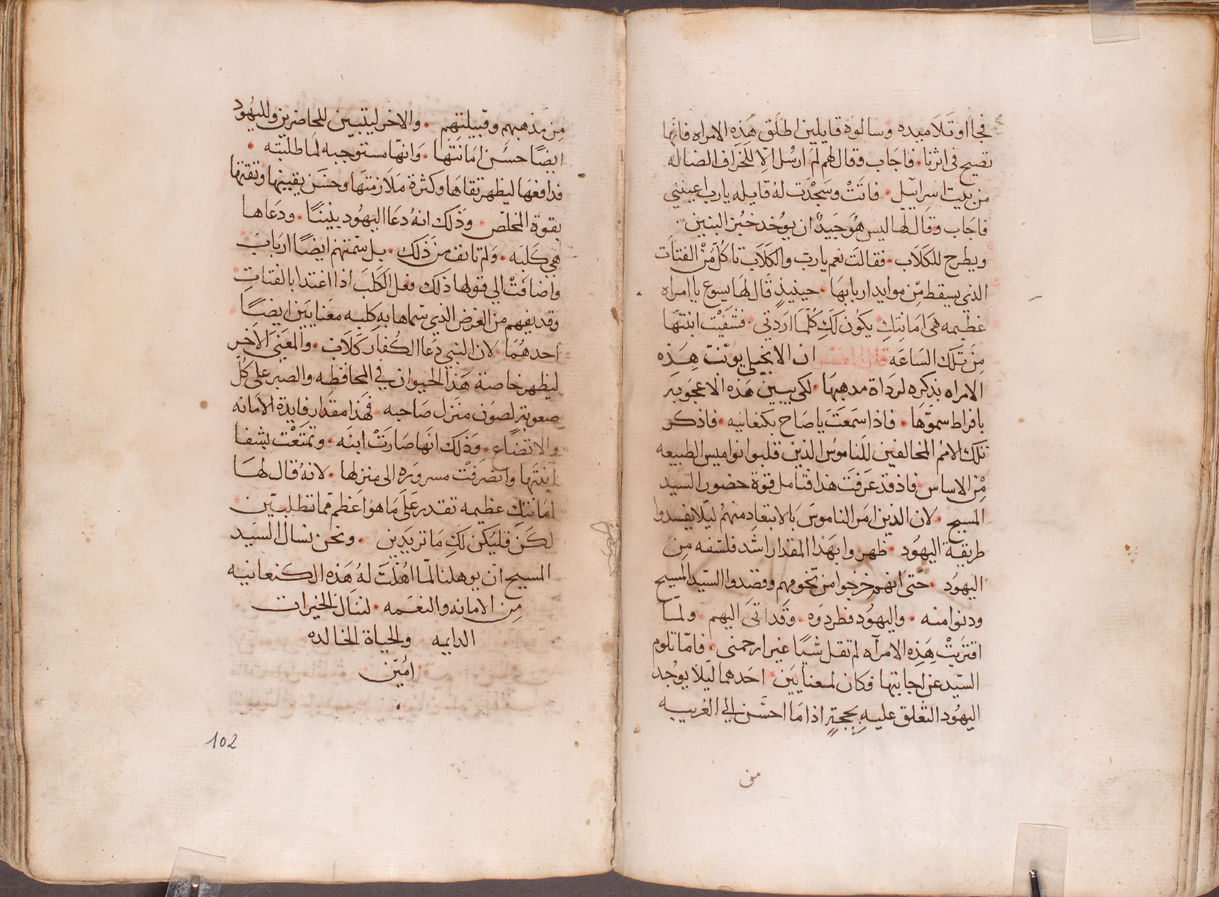 فجاأوا تلاميده وسالوه قايلين اطلق هذه الامراه فانها
تصيح في اثرنا. فاجاب وقال لهم لم ارسل الا للخراف الضاله
من بيت اسراييل. فاتت وسجدت له قايله يارب اعينيني
فاجاب وقال لها ليس هو جيد ان يوخد خبز البنين
ويطرح للكلاب. فقالت نعم يارب والكلاب تاكل من الفتات
الذي يسقط من موايد اربابها. حينيذ قال لها يسوع ياامراه
عظيمه هي امانتك يكون لك كلما اردتي. فشفيت ابنتها
من تلك الساعه قال المفسر ان الانجيلي يوبنت هذه
الامراه بذكره لرداة مدهبها. لكي يبين هذه الاعجوبه
بافراط سموها. فاذا سمعت ياصاح بكنعانيه. فاذكر
تلك الامم المخالفين للناموس الذين قلبوا نواميس الطبيعه
من الاساس فاذ قد عرفت هدا فتامل قوة حضور السيد
المسيح. لان الذين امر الناموس بالابتعاد منهم ليلا يفسدوا
طريقة اليهود. ظهروا بهدا المقدار اشد فلسفه من
اليهود. حتى انهم خرجوا من تخومهم وقصدوا السيد المسيح
ودنوا منه. واليهود فطردوه. وقد اتى اليهم. ولما
اقتربت هذه الامرآه لم تقل شيًا غير ارحمني. فاما تلوم
السيد عن اجابتها فكان لمعنايين. احدهما ليلا يوجد
اليهود التعلق عليه بحجةٍ اذا ما احسن الى الغريبه
من
من مذهبهم وقبيلتهم. والاخر ليتبين للحاضرين ولليهود
ايضًا حسن امانتها. وانها مستوجبه لما طلبته.
فدافعها ليظهر بقاها وكثرة ملازمتها وحسن يقينها وثقتها
بقوة المخلص. وذلك انه دعا اليهود بنينًا. ودعاها
هي كلبه. ولم تانف من ذلك. بل سمتهم ايضًا ارباب
واضافت الى قولها ذلك وفعل الكلب اذا اغتدا بالفتات
وقد يفهم من الغرض الذي سماها به كلبه معنايين ايضًا
احدهما. لان النبي دعا الكفار كلاب. والمعني الاخر
ليظهر خاصة هذا الحيوان في المحافظه والصبر على كل
صعوبة لصون منزل صاحبه. فهذا مقدار فايدة الامانه
والاتضاع. وذلك انها صارت ابنه. وتمتعت بشفا
ابنتها وانصرفت مسروره الى منزلها. لانه قال لها
امانتك عظيمه تقدر على ما هو اعظم مما تطلبين
لكن فليكن لك ما تريدين. ونحن نسال السيد
المسيح ان يوهلنا لما اهلت له هذه الكنعانيه
من الامانه والنعمه. لننال الخيرات
الدايمه والحياة الخالده
امين
102